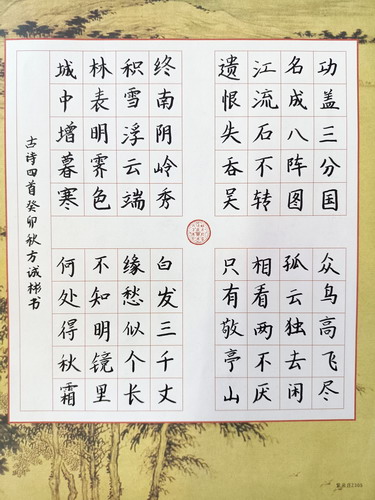 功盖三分国
名成八阵图
江流石不转
遗恨失吞吴
终南阴岭秀
积雪浮云端
林表明霁色
城中增暮寒
众鸟高飞尽
孤云独去闲
相看两不厌
只有敬亭山
白发三千丈
缘愁似个长
不知明镜里
何处得秋霜
古诗四首癸卯秋方诚彬书